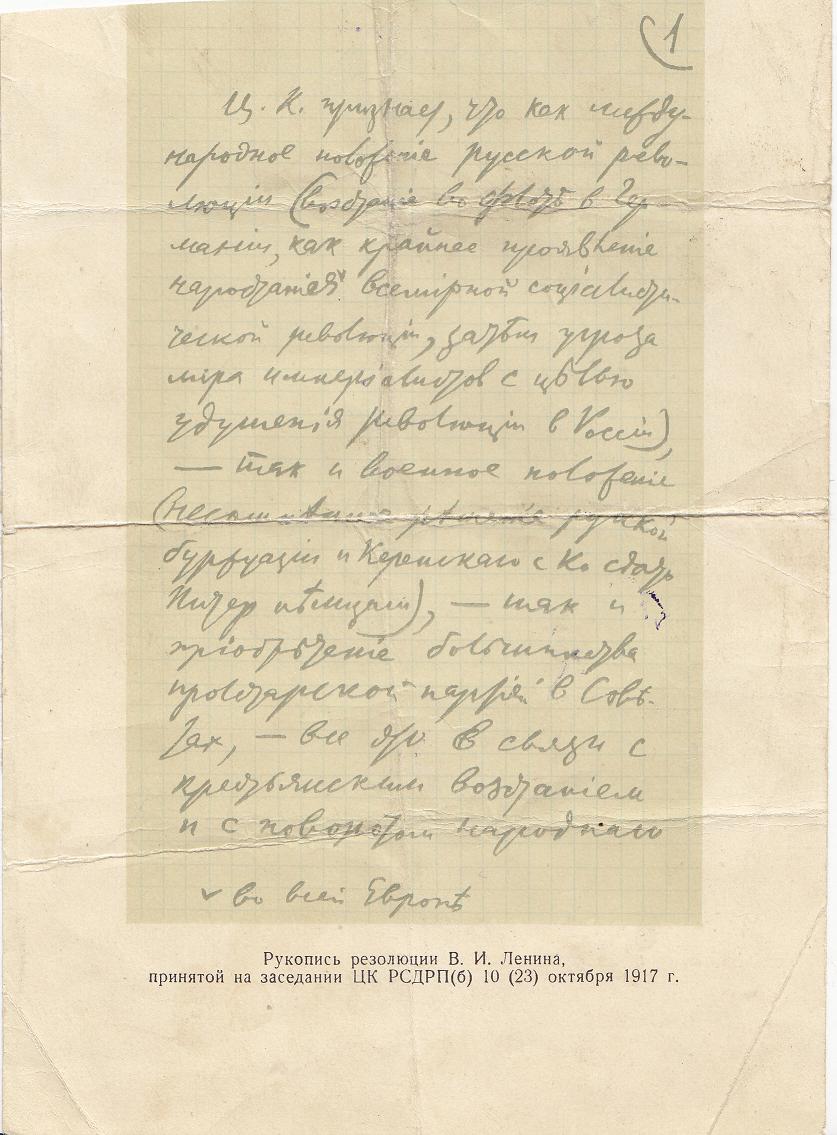 1
Ц. К. признает, что как между-
народное положеніе русской рево-
люціи (возстаніе во флотѣ в Гер-
маніи, как крайнее проявленіе
наростанія ѵ всемірной соціалисти-
ческой революціи, затѣм угроза
мира имперіалистов с цѣлью
удушенія революціи в Россіи),
— так и военное положеніе
(несомнѣнное рѣшеніе русской
буржуазіи и Керенскаго с Ко сдать
Питер нѣмцам), — так и
пріобрѣтеніе большинства
пролетарской партіей в Совѣ-
тах, — все это в связи с
крестьянским возстаніем
и с поворотом народнаго
ѵ во всей Европѣ
Рукопись резолюции В. И. Ленина,
принятой на заседании ЦК РСДРП(б) 10 (23) октября 1917 г.